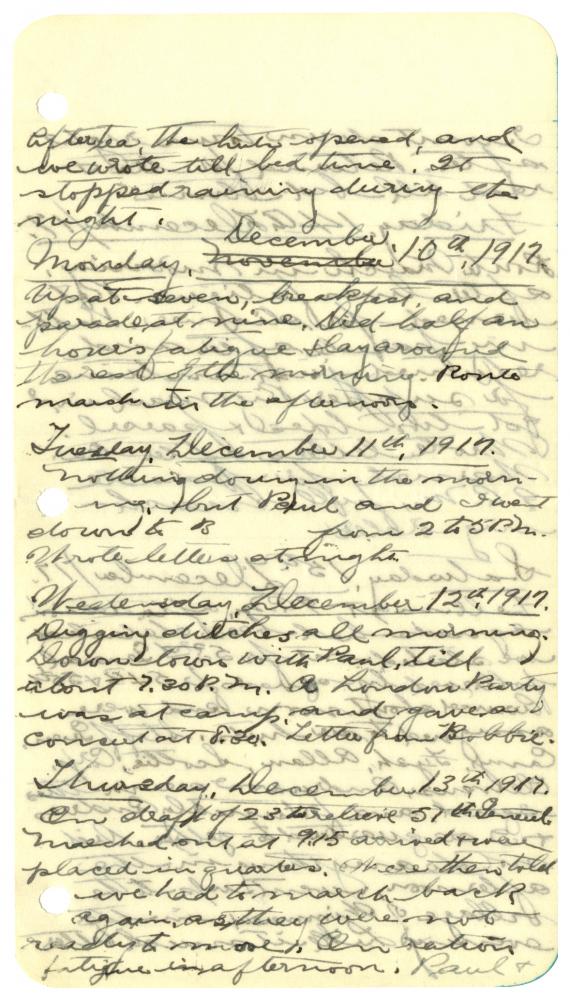 After tea, the huts opened, and
we wrote till bed time. It
stopped raining during the
night.
December
Monday, November 10th, 1917.
Up at seven, breakfast, and
parade at nine. Did half an
hour's fatigue & lay around
the rest of the morning. Route
march in the afternoon.
Tuesday, December 11th, 1917.
Nothing doing in the morn-
ing, but Paul and I went
down to B from 2 to 5 P.M.
Wrote letters at night.
Wednesday, December 12th, 1917.
Digging ditches all morning.
Down town with Paul, till
about 7.30 P.M. A London Party
was at camp, and gave a
concert at 8.30. Letter from Bobbie.
Thursday, December 13th, 1917.
On draft of 23 to relieve 51st
Marched out at 9.15 arrived & were
placed in quarters. Were then told
we had to march back
again, as they were not
ready to move. On ration
fatigue in afternoon. Paul &